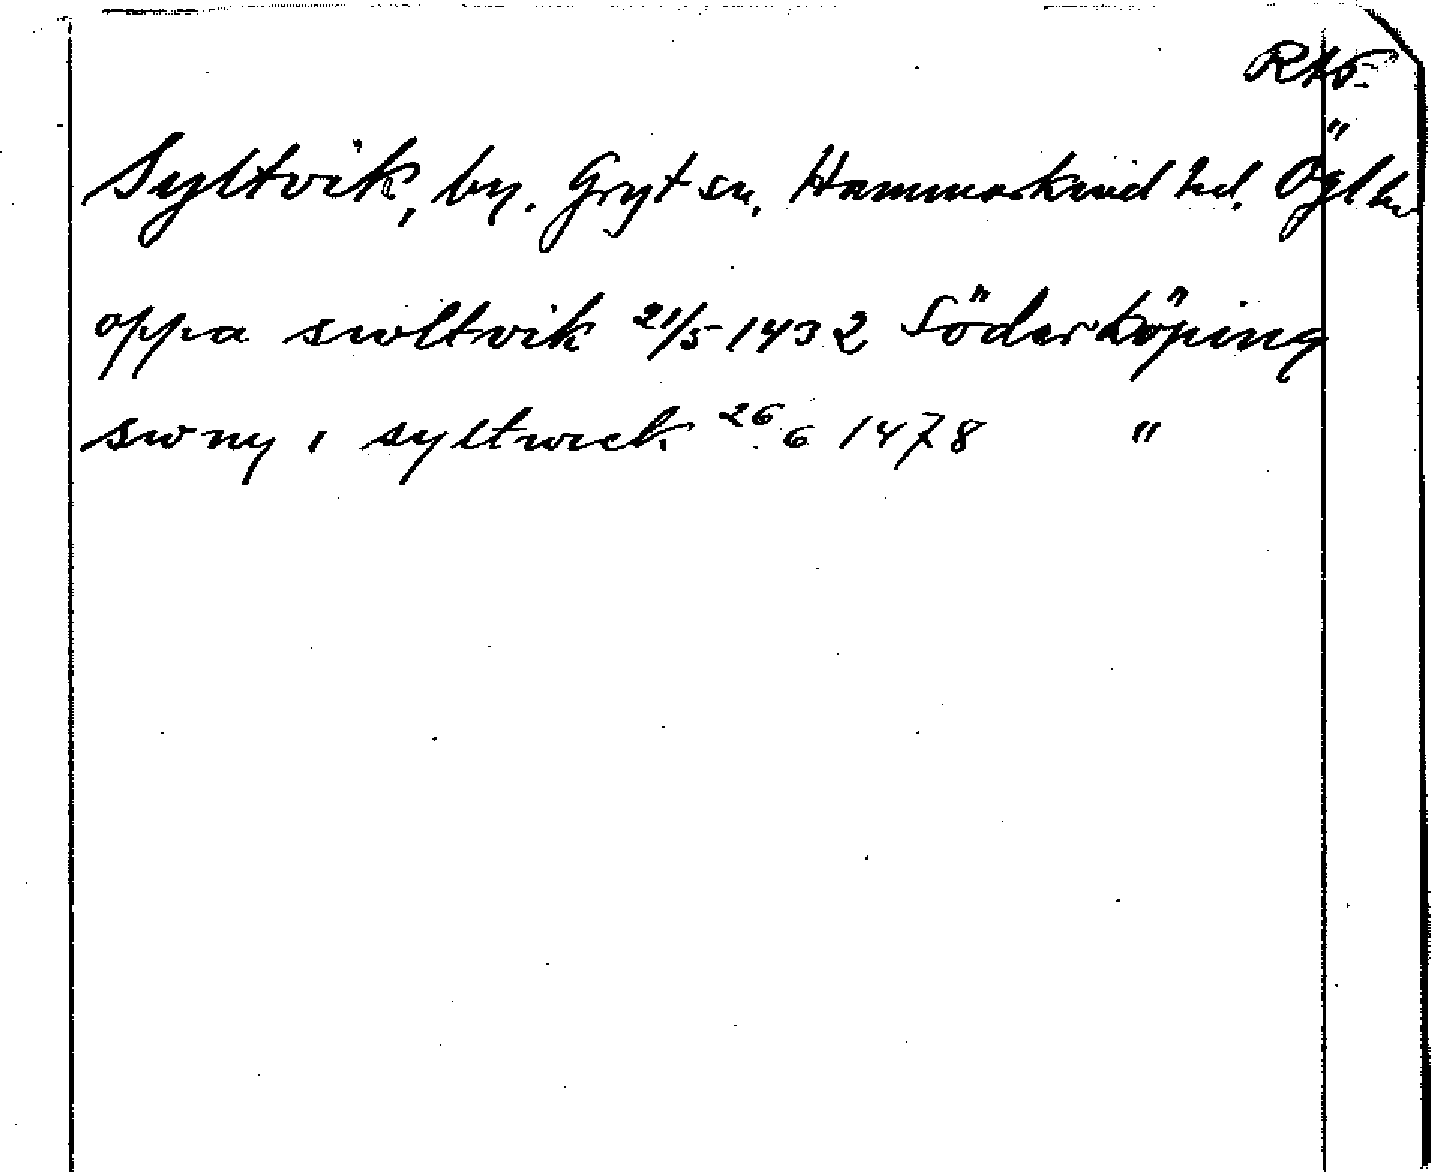 RAP
Syltvik, by. Gryt sn, Hammarkind hd. Ögl
oppa swltvik 21/5 1432 Söderköping
sw ny i syltwick 26 6 1478 "